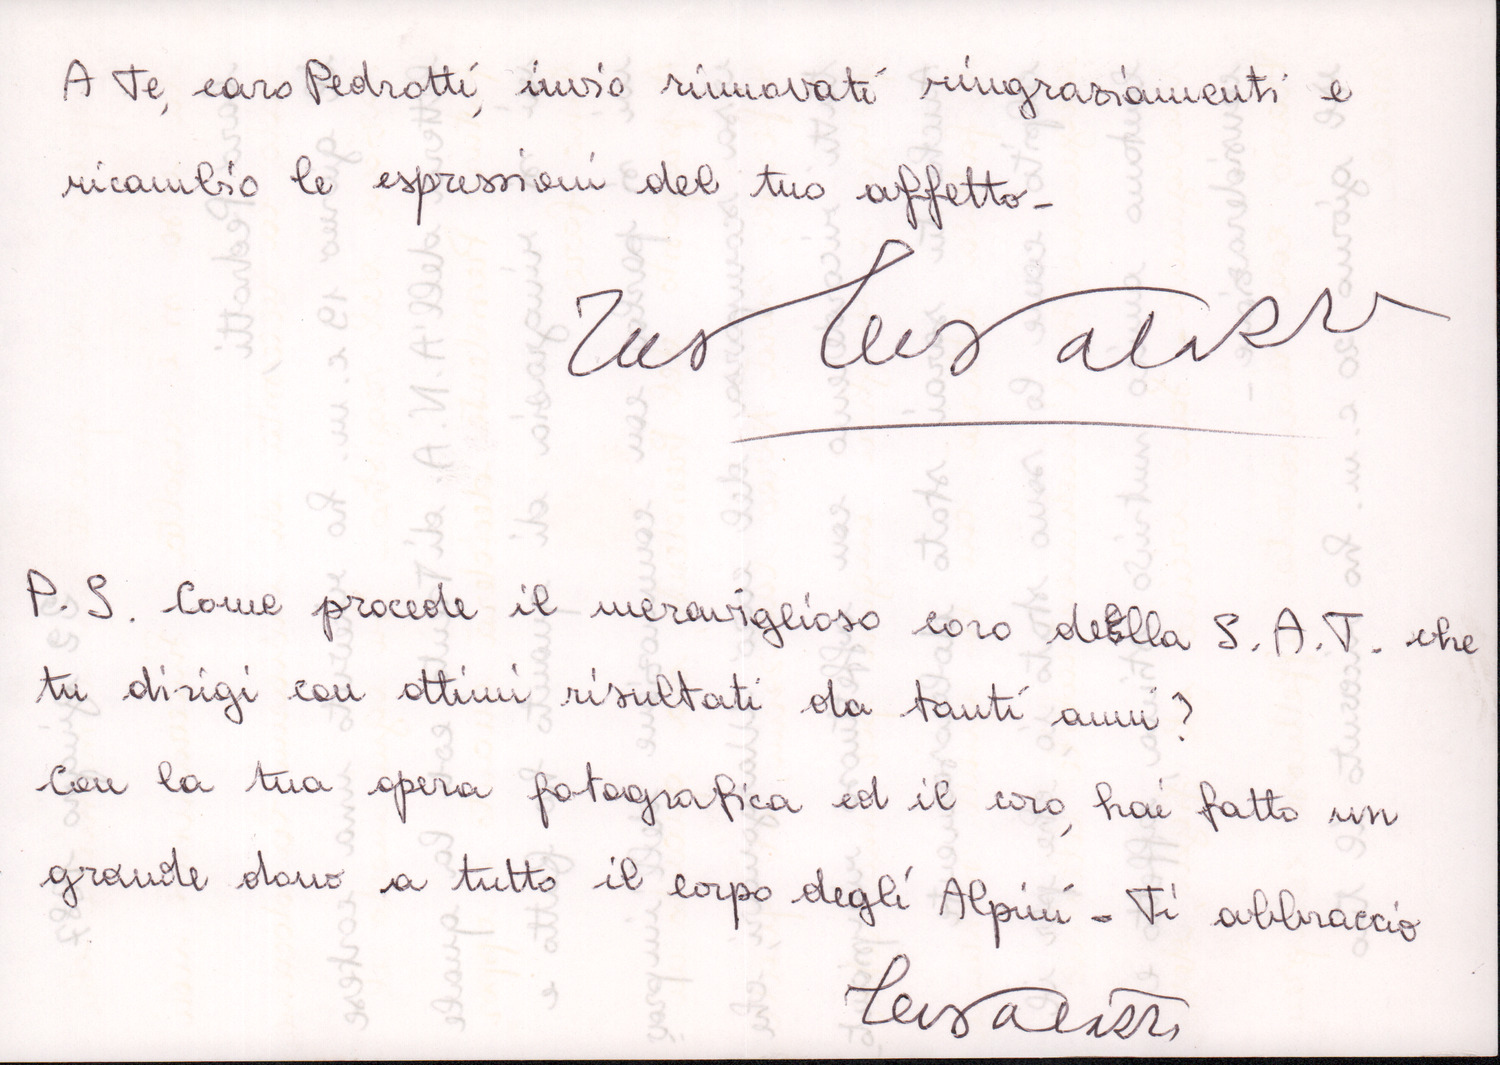 A Te, caro Pedrotti, invio rinnovati ringraziamenti e
ricambio le espressioni del tuo affetto-
P.S. Come procede il meraviglioso coro della S.A.T. che
tu dirigi con ottimi risultati da tanti anni?
Con la tua opera fotografica ed il coro, hai fatto un
grande dono a tutto il corpo degli Alpini - Ti abbraccio